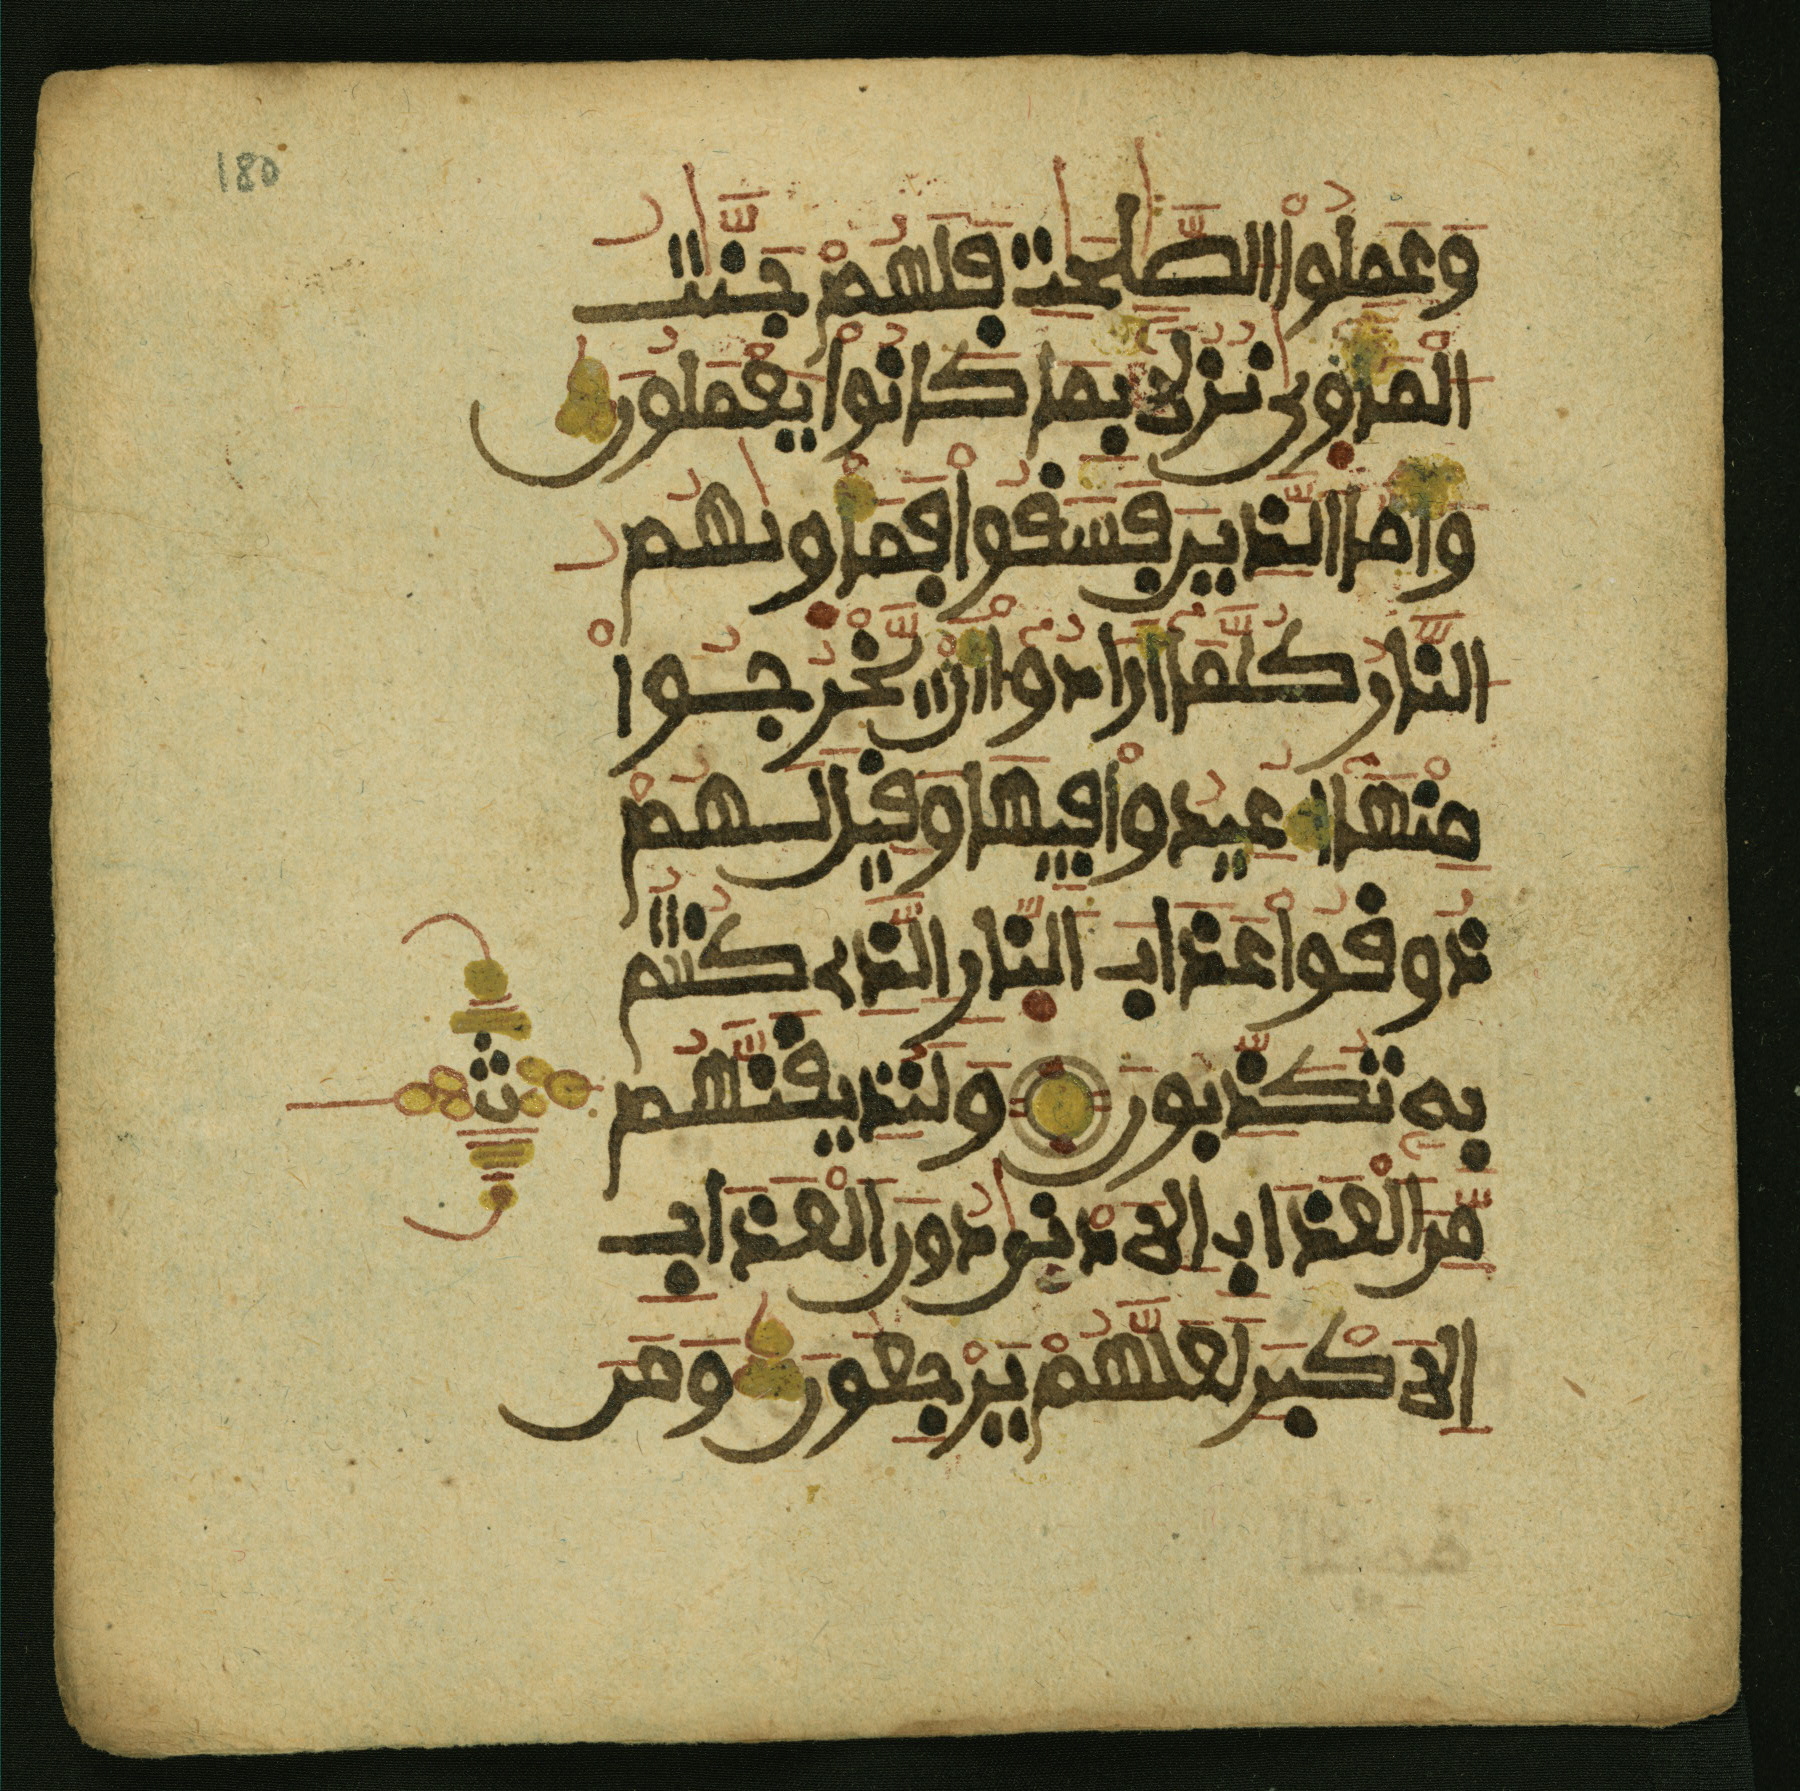 180
وَعَمِلُوا الصَّٰلِحَٰتِ فَلَهُمْ جَنَّٰتُ
الْمَأْوَىٰ نُزُلًا بِمَا كَانُوا يَعْمَلُونَ
وَأَمَّا الَّذِينَ فَسَقُوا فَمَأْوَىٰهُمُ
النَّارُ كُلَّمَا أَرَادُوا أَنْ يَّخْرُجُوا
مِنْهَا أُعِيدُوا فِيهَا وَقِيلَ لَهُمْ
ذُوقُوا عَذَابَ النَّارِ الَّذِي كُنتُم
بِهِ تُكَذِّبُونَ وَلَنُذِيقَنَّهُم
ث
مِّنَ الْعَذَابِ الْأَدْنَىٰ دُونَ الْعَذَابِ
الْأَكْبَرِ لَعَلَّهُمْ يَرْجِعُونَ وَمَنَ